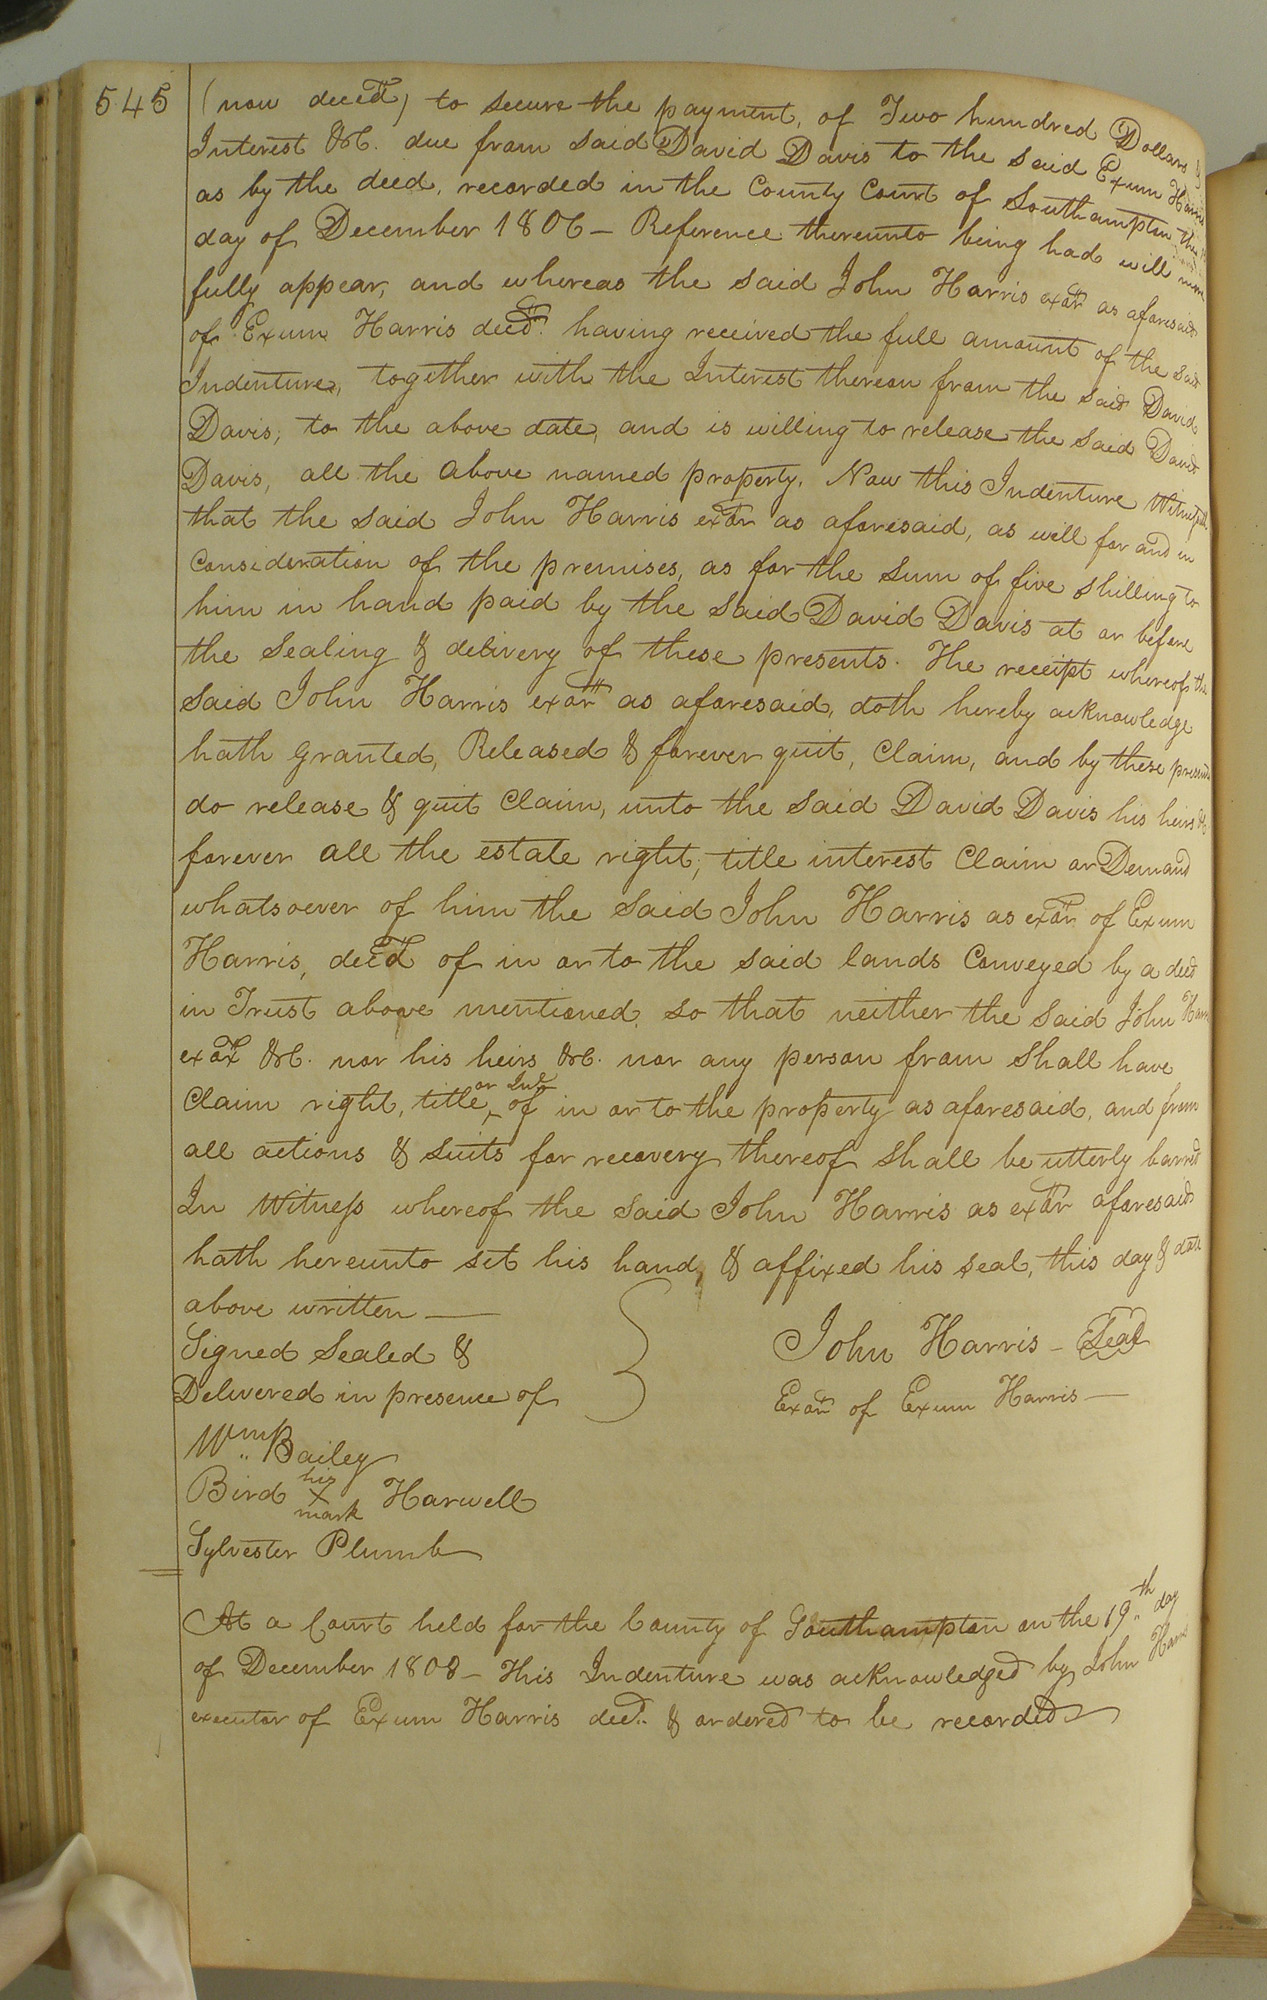 545
(now decd) to secure the payment, of Two hundred Dollars &
Interest &C. due from said David Davis to the said Exum Harris
as by the deed, recorded in the County Court of Southampton the
day of December 1806 — Reference thereunto being had will more
fully appear, and whereas the said John Harris exor as aforesaid
of Exum Harris decd. having received the full amount of the said
Indenture, together with the Interest thereon from the said David
Davis, to the above date, and is willing to release the said David
Davis, all the above named property. Now this Indenture Witnesseth
that the said John Harris exor as aforesaid, as well for and in
Consideration of the premises, as for the sum of five shilling to
him in hand paid by the said David Davis at or before
the Sealing & delivery of these presents. The receipt whereof the
said John Harris exor as aforesaid, doth hereby acknowledge
hath granted, Released & forever quit, Claim, and by these presents
do release & quit Claim, unto the said David Davis his heirs &c
forever all the estate right, title interest Claim or Demand
whatsoever of him the said John Harris as exor of Exum
Harris, decd of in or to the said lands Conveyed by a deed
in Trust above mentioned, so that neither the said John Harris
exor &C. nor his heirs &C. nor any person from shall have
Claim right, title, or Int of in or to the property as aforesaid, and from
all actions & suits for recovery thereof shall be utterly barred
In Witness whereof the said John Harris as exor aforesaid
hath hereunto set his hand, & affixed his seal, this day & date
above written —
Signed Sealed &
Delivered in presence of
John Harris — Seal
Exor of Exum Harris —
Wm Bailey
Bird his X mark Harwell
Sylvester Plumb
At a Court held for the County of Southampton on the 19th day
of December 1808 — This Indenture was acknowledged by John Harris
executor of Exum Harris decd. & ordered to be recorded